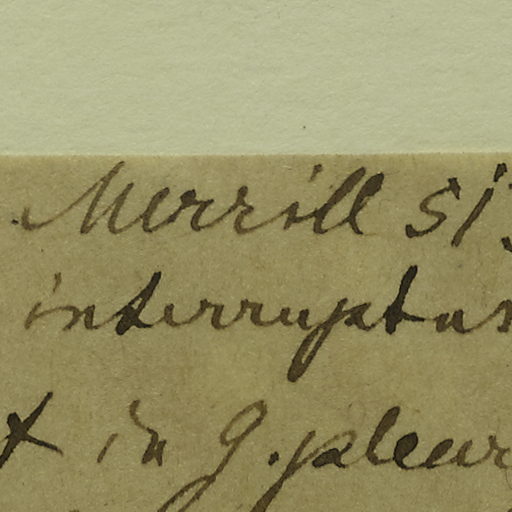 Merrill
interruptus
in G. pleur